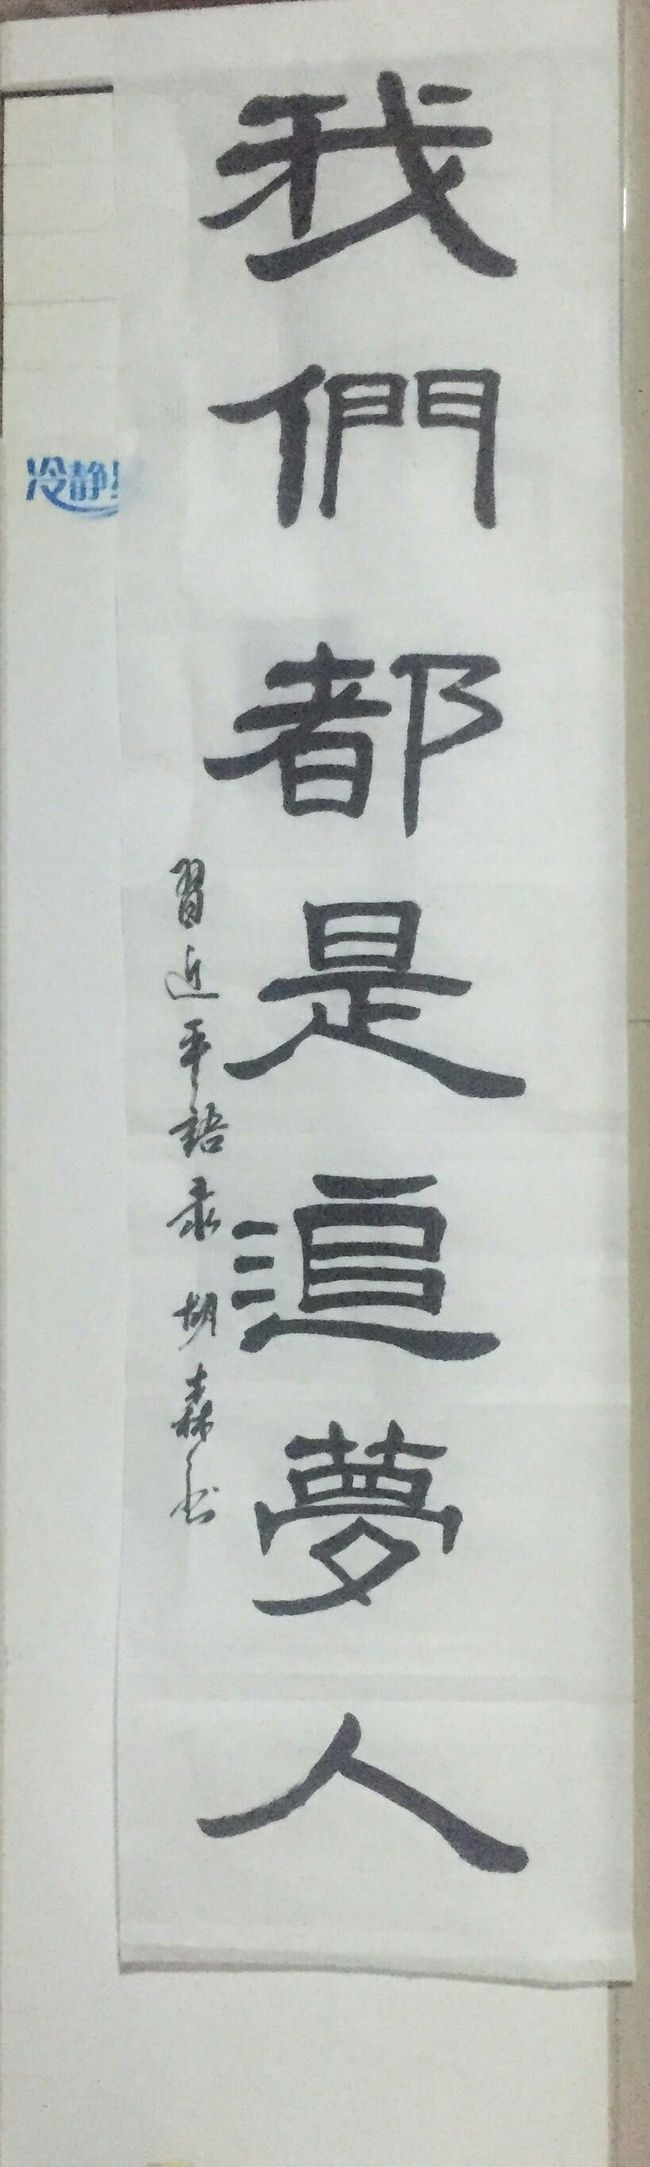 我們都是追夢人
習近平語录 胡森书
冷静